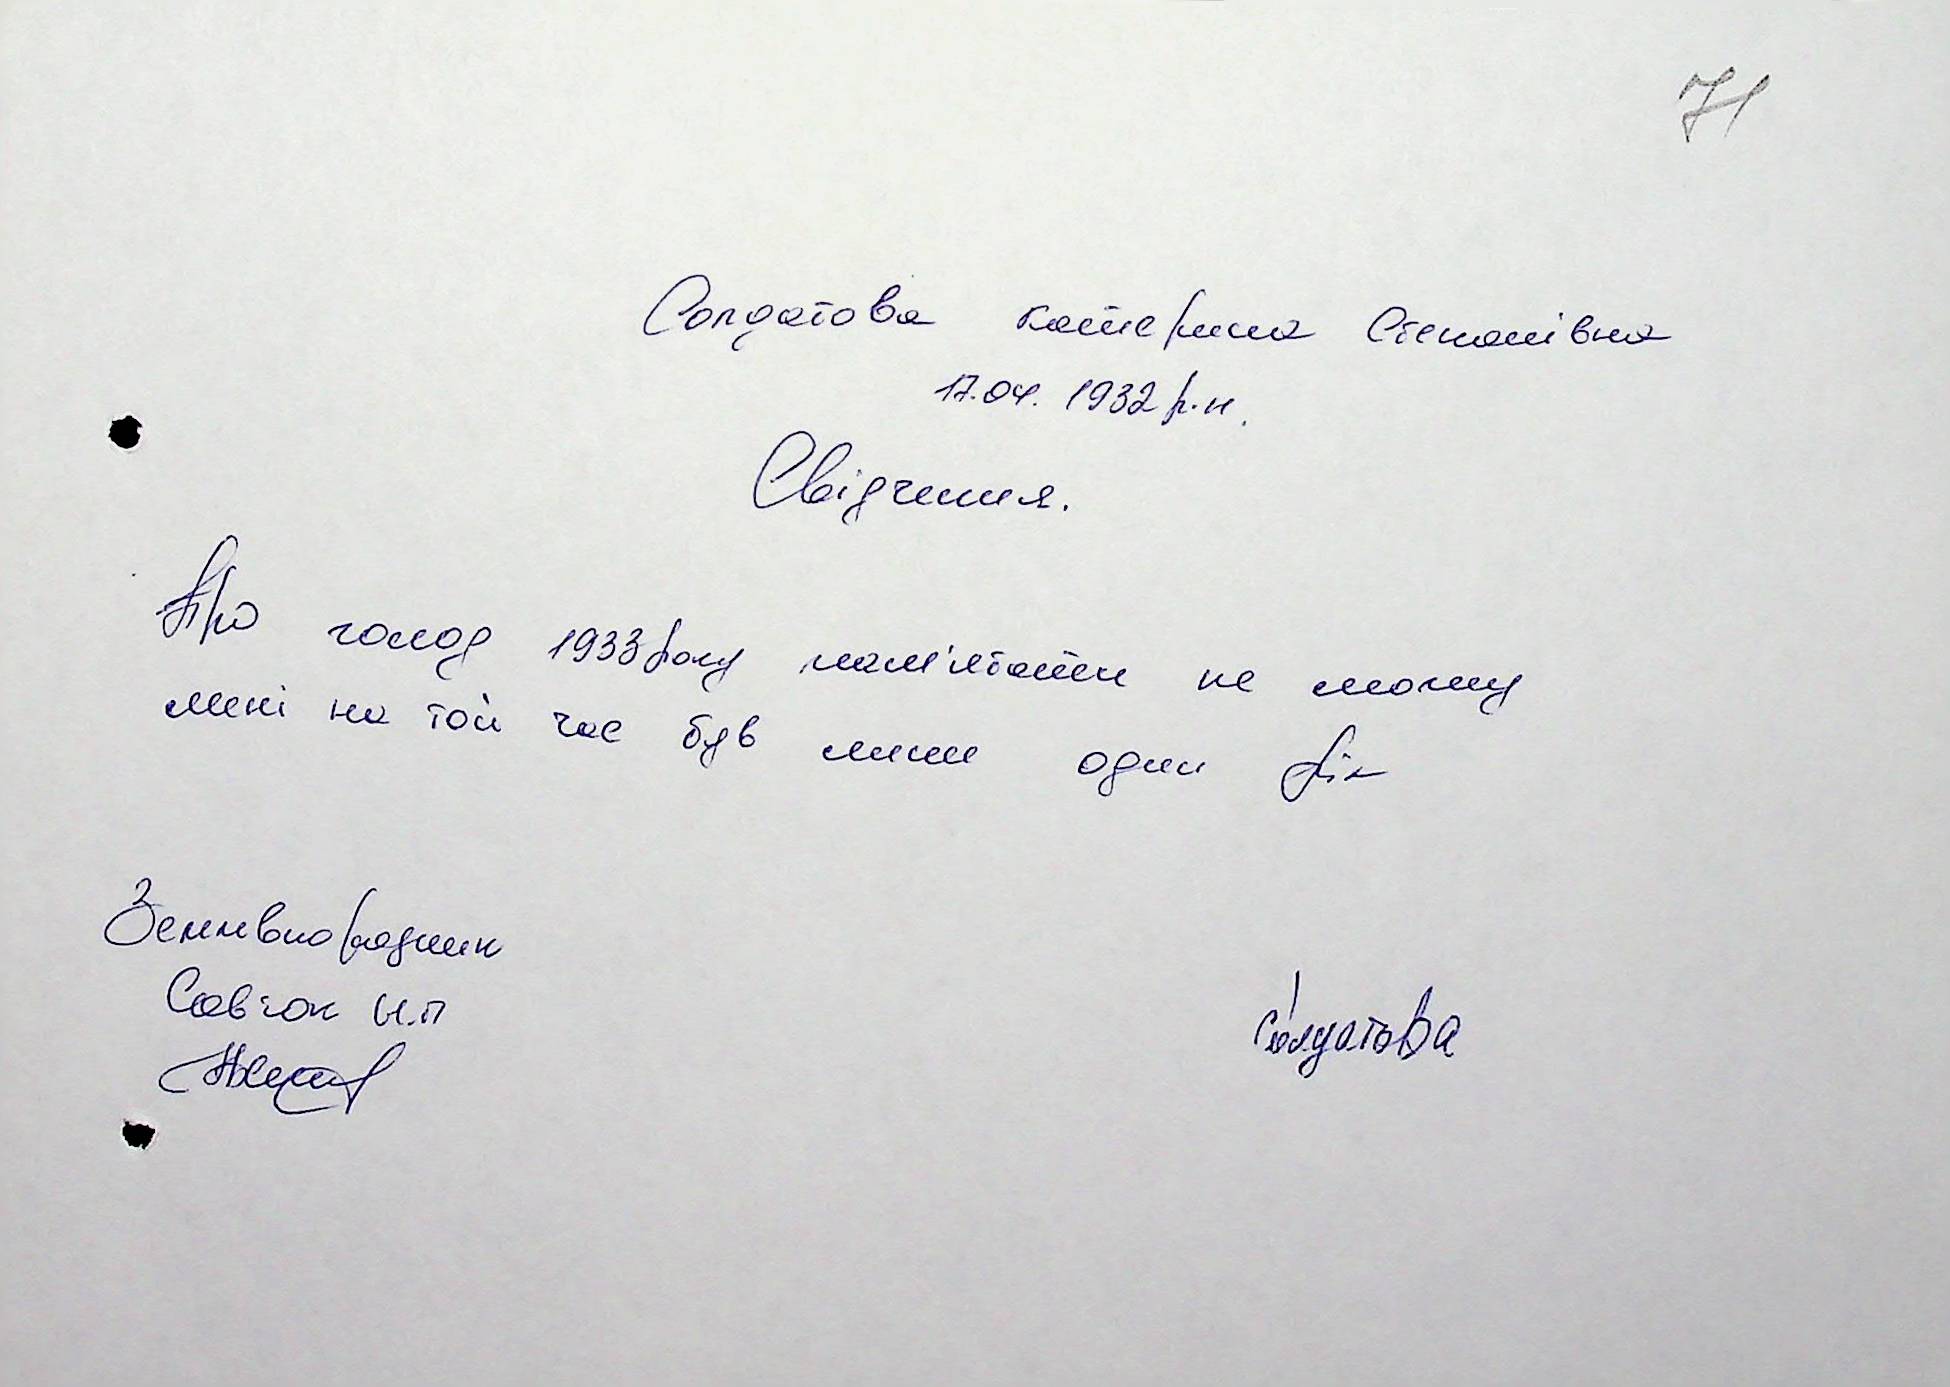 71
Солдатова Катерина Степанівна
17.04. 1932 р.н.
Свідчення.
Про голод 1933 року пам'ятати не можу
мені на той час був лише один рік
Землевпорядник
Савчок Н.П
Солдатова